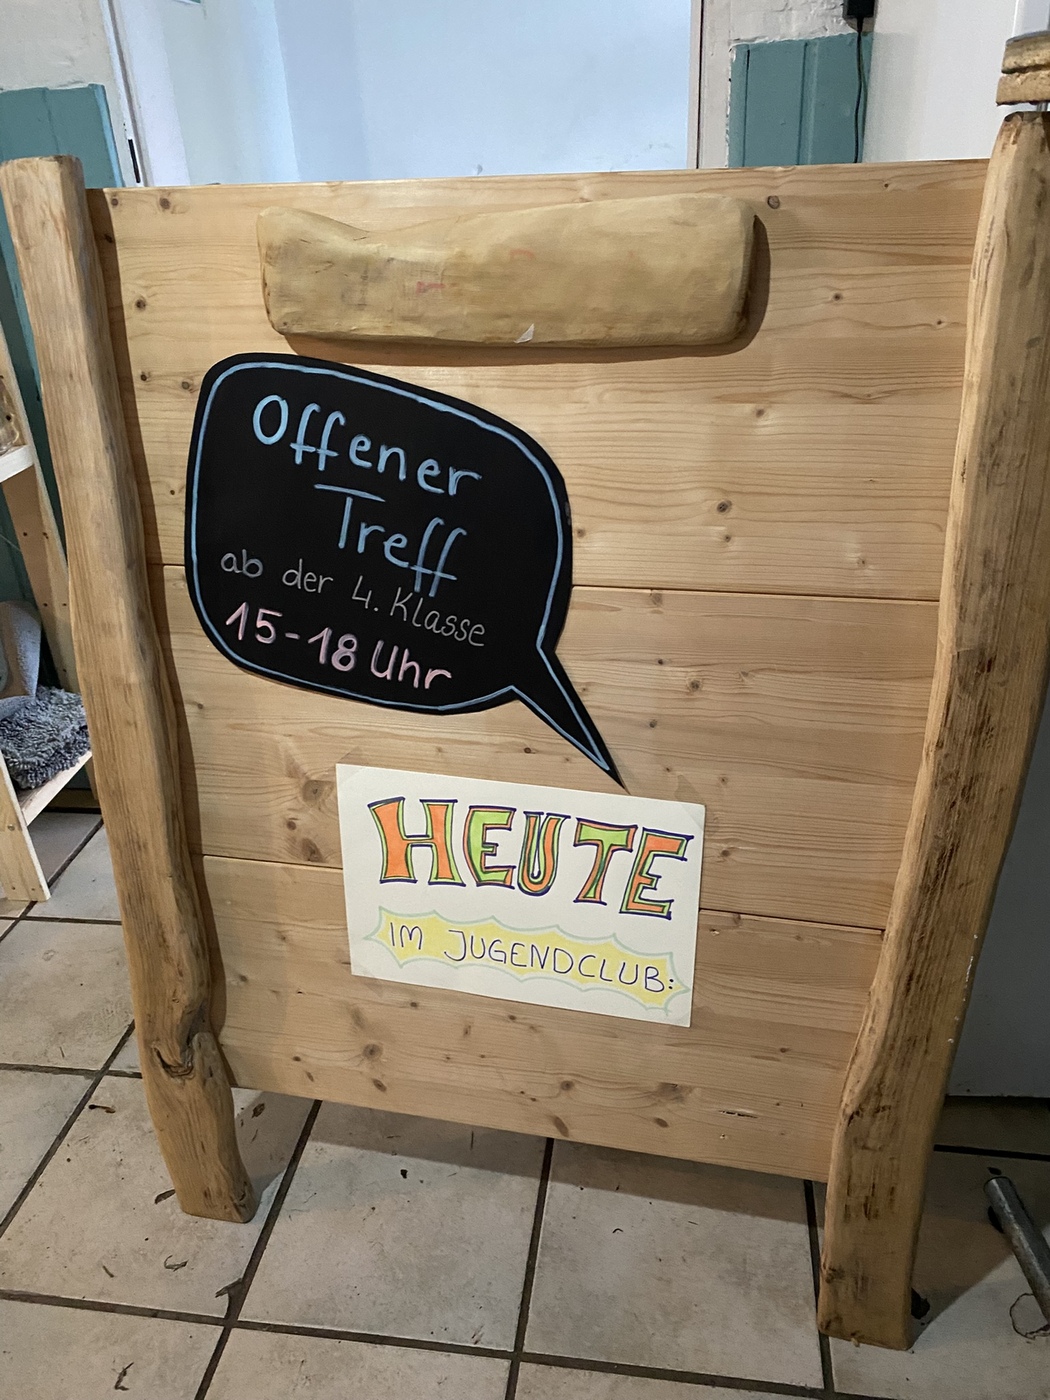 Offener
Treff
ab der 4. Klasse
15-18 Uhr
HEUTE
IM JUGENDCLUB: